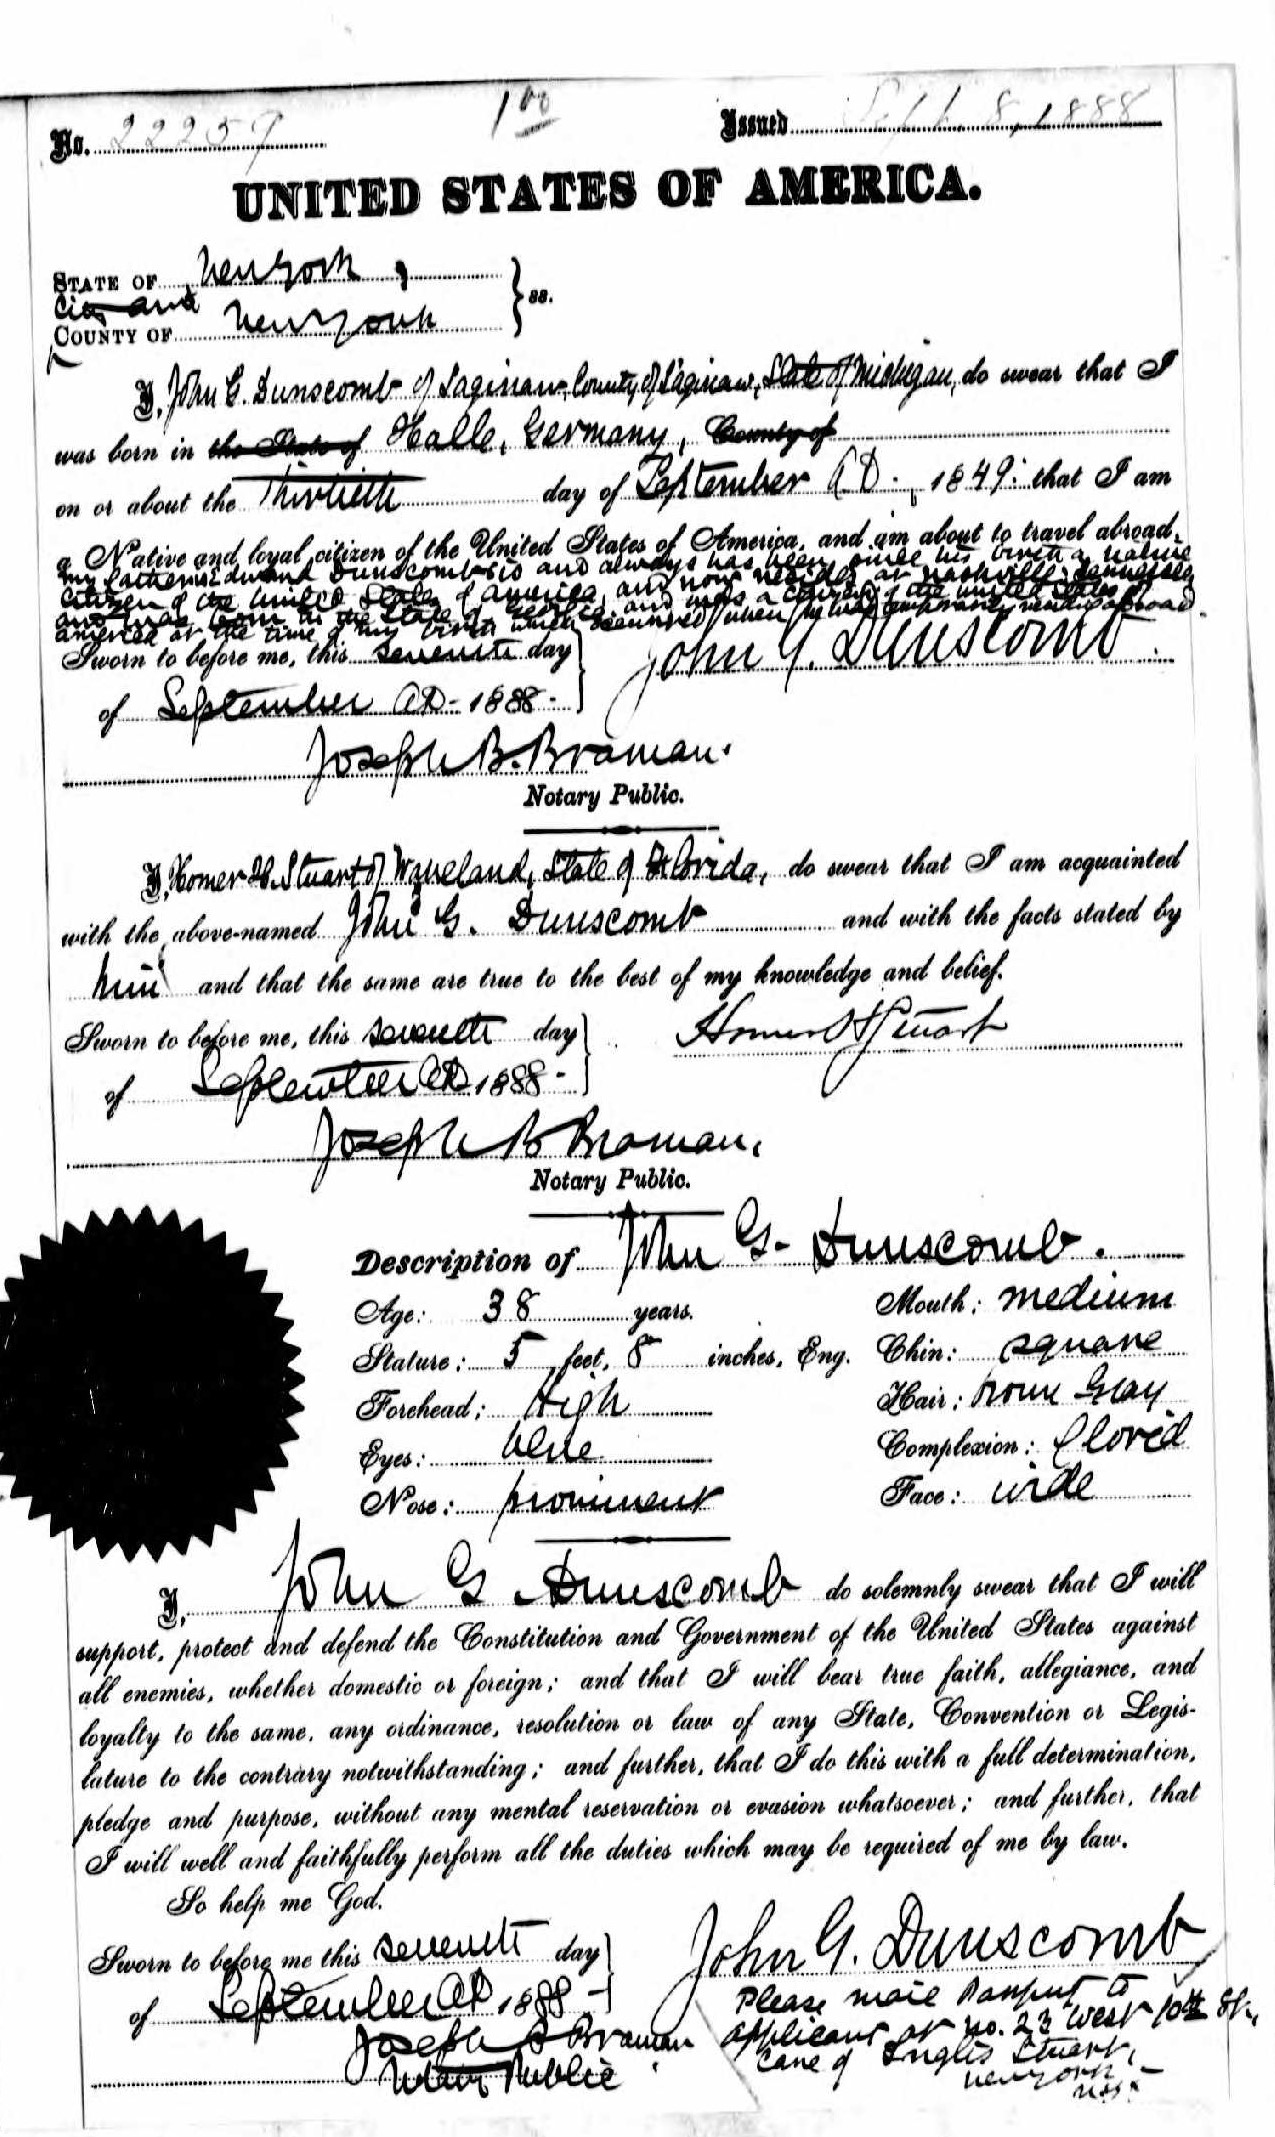 No. 22259 1 00 Issued Sept. 8, 1888
UNITED STATES OF AMERICA.
STATE OF New York,
City and
COUNTY OF New York } ss.
I, John G. Dunscomb of Saginaw, County of Saginaw, State of Michigan, do swear that I
was born in the State of Halle, Germany, County of
on or about the Thirtieth day of September A.D., 1849; that I am
a Native and loyal citizen of the United States of America, and am about to travel abroad.
my father Dunscomb is and always has been since his birth a native
citizen of the United States of America, and now resides at Nashville Tennessee
and was born in the State of and was a citizen of the United States of
America at the time of my birth which occurred when he was temporarily residing abroad.
Sworn to before me, this seventh day
of September A.D. 1888.
John G. Dunscomb
Joseph B. Braman.
Notary Public.
I, Homer H. Stuart of Waveland, State of Florida, do swear that I am acquainted
with the above-named John G. Dunscomb and with the facts stated by
him and that the same are true to the best of my knowledge and belief.
Sworn to before me, this seventh day
of September A.D. 1888.
Homer H Stuart
Joseph B Braman.
Notary Public.
Description of John G. Dunscomb.
Age: 38 years. Mouth: medium
Stature: 5 feet, 8 inches, Eng. Chin: square
Forehead: High Hair: Gray
Eyes: blue Complexion: florid
Nose: prominent Face: wide
I, John G Dunscomb do solemnly swear that I will
support, protect and defend the Constitution and Government of the United States against
all enemies, whether domestic or foreign; and that I will bear true faith, allegiance, and
loyalty to the same, any ordinance, resolution or law of any State, Convention or Legis-
lature to the contrary notwithstanding; and further, that I do this with a full determination,
pledge and purpose, without any mental reservation or evasion whatsoever; and further, that
I will well and faithfully perform all the duties which may be required of me by law.
So help me God.
Sworn to before me this seventh day
of September A.D. 1888
John G. Dunscomb
Joseph B Braman
Notary Public
Please mail Passport to
applicant at no. 23 West 10th St.,
care of Inglis Stuart,
New York